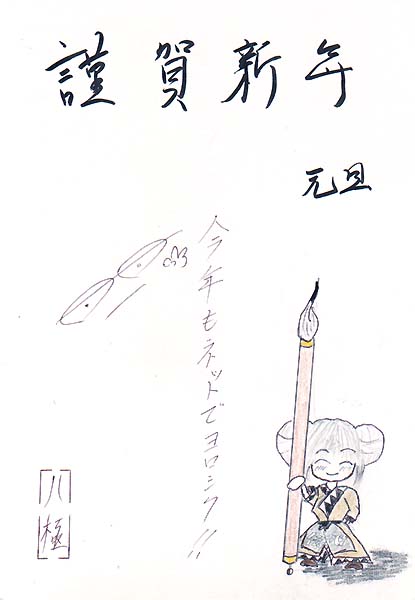 謹賀新年
元旦
今年もネットでヨロシク!!
八極